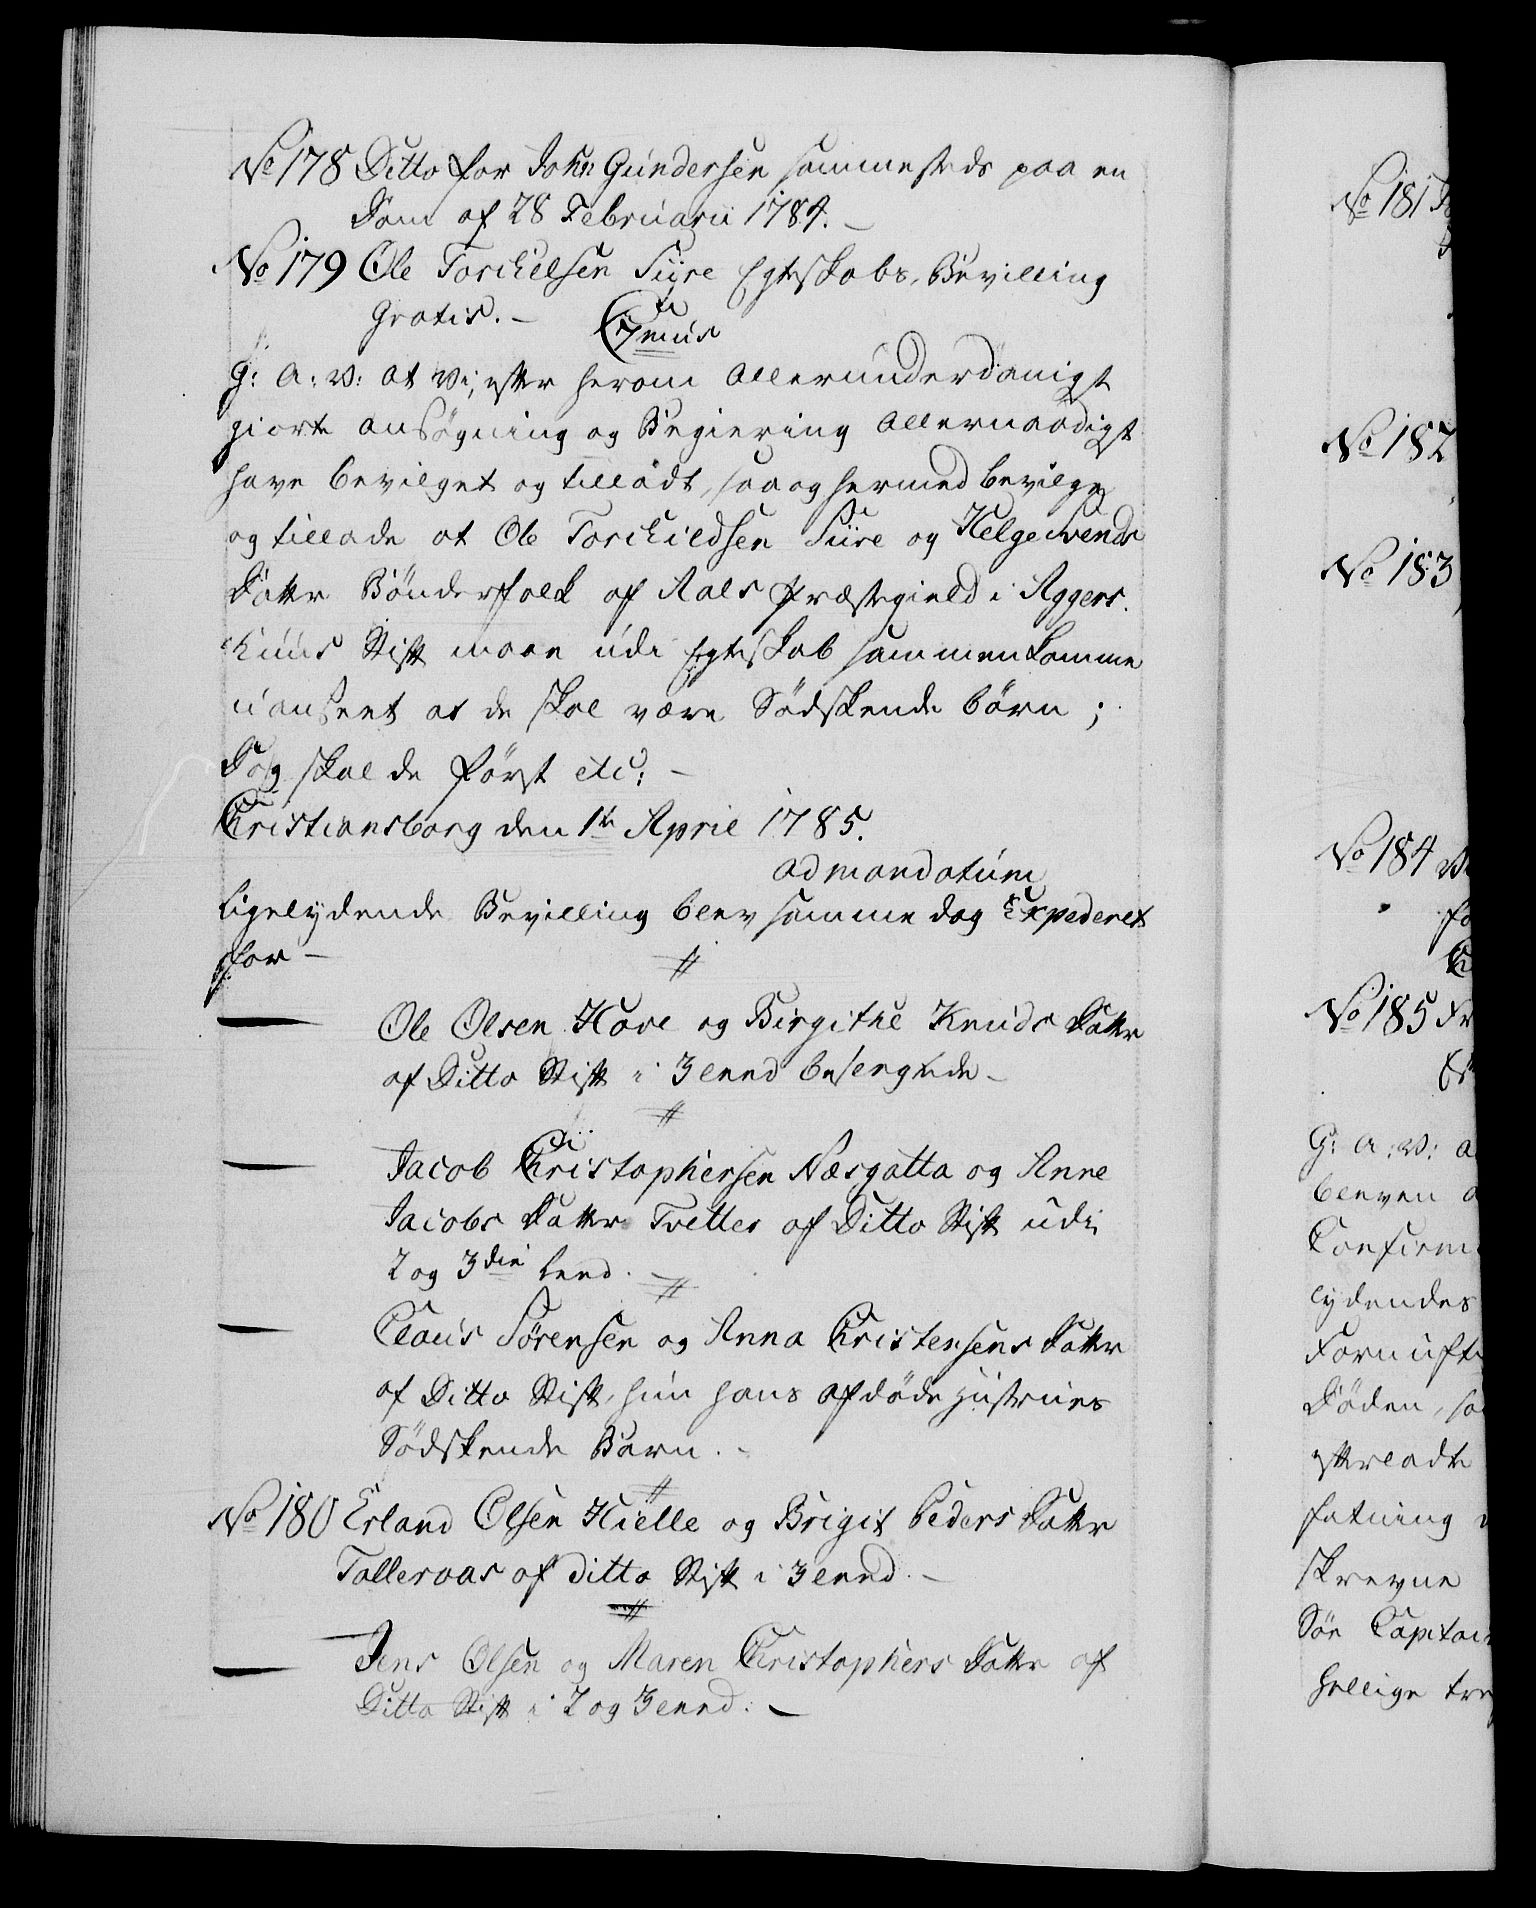 No 178 Ditto for John Gundersen sammesteds paa en
Dom af 28 Februarii 1784. —
No 179 Ole Torchelsen Siire Egteskabs-Bevilling
gratis. —
C 7mus
G: A: V: at Vi, efter herom allerunderdanigst
giorte Ansøgning og Begiering allernaadigst
have bevilget og tilladt, saa og hermed bevilge
og tillade at Ole Torchildsen Siire og Helge Svends
Datter Bønderfolk af Aals Præstegield i Agger-
huus Stift maae udi Egteskab sammenkomme
uanseet at de skal være Sødskende børn;
Dog skal de først etc: —
Christiansborg den 1te April 1785.
ad mandatum
Ligelydende Bevilling blev samme dag Expederet
for —
Ole Olsen Hove og Birgithe Knuds Datter
af Ditto Stift i 3 Leed besvogrede —
Jacob Christophersen Næsgatta og Anne
Jacobs Datter Tvetter af Ditto Stift udi
2 og 3die Leed. —
Claus Sørensen og Anna Christensens Datter
af Ditto Stift, hun hans afdøde Hustrues
Sødskende Barn. —
No 180 Erland Olsen Hielle og Brigit Peders Datter
Tollervas af ditto Stift i 3 Leed. —
Jens Olsen og Maren Christophers Datter af
Ditto Stift i 2 og 3 Leed. —
No 181
No 182
No 183
No 184
No 185
G: A: V: a
bleven
Confirm
lydendes
Fornuft
Døden, sa
efterladte
fatning
skrevne
Søe Capitai
hellige tre